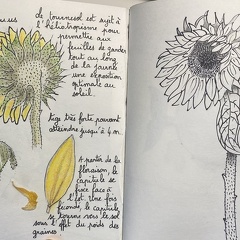 le tournesol est sujet à
l'héliotropisme pour
permettre aux
feuilles de garder
tout au long
de la journée
une exposition
optimale au
soleil
tige très forte pouvant
atteindre jusqu'à 4 m.
A partir de la
floraison, le
capitule se
fixe face à
l'est. Une fois
fécondé, le capitule
se tourne vers le sol
sous l'effet du poids des
graines